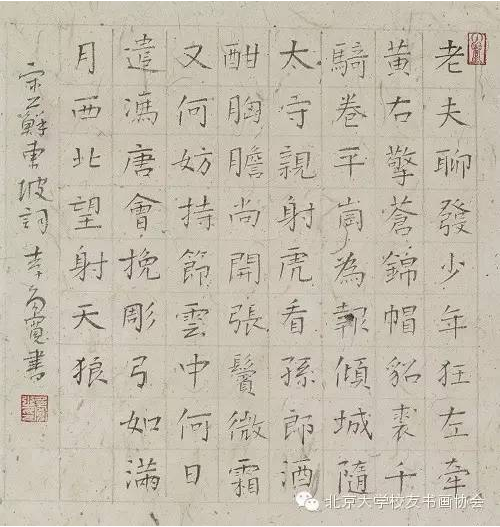 老夫聊發少年狂左牽
黃右擎蒼錦帽貂裘千
騎卷平崗為報傾城隨
太守親射虎看孫郎酒
酣胸膽尚開張鬢微霜
又何妨持節雲中何日
遣馮唐會挽彫弓如滿
月西北望射天狼
宋蘇東坡詞李寬書
北京大学校友书画协会